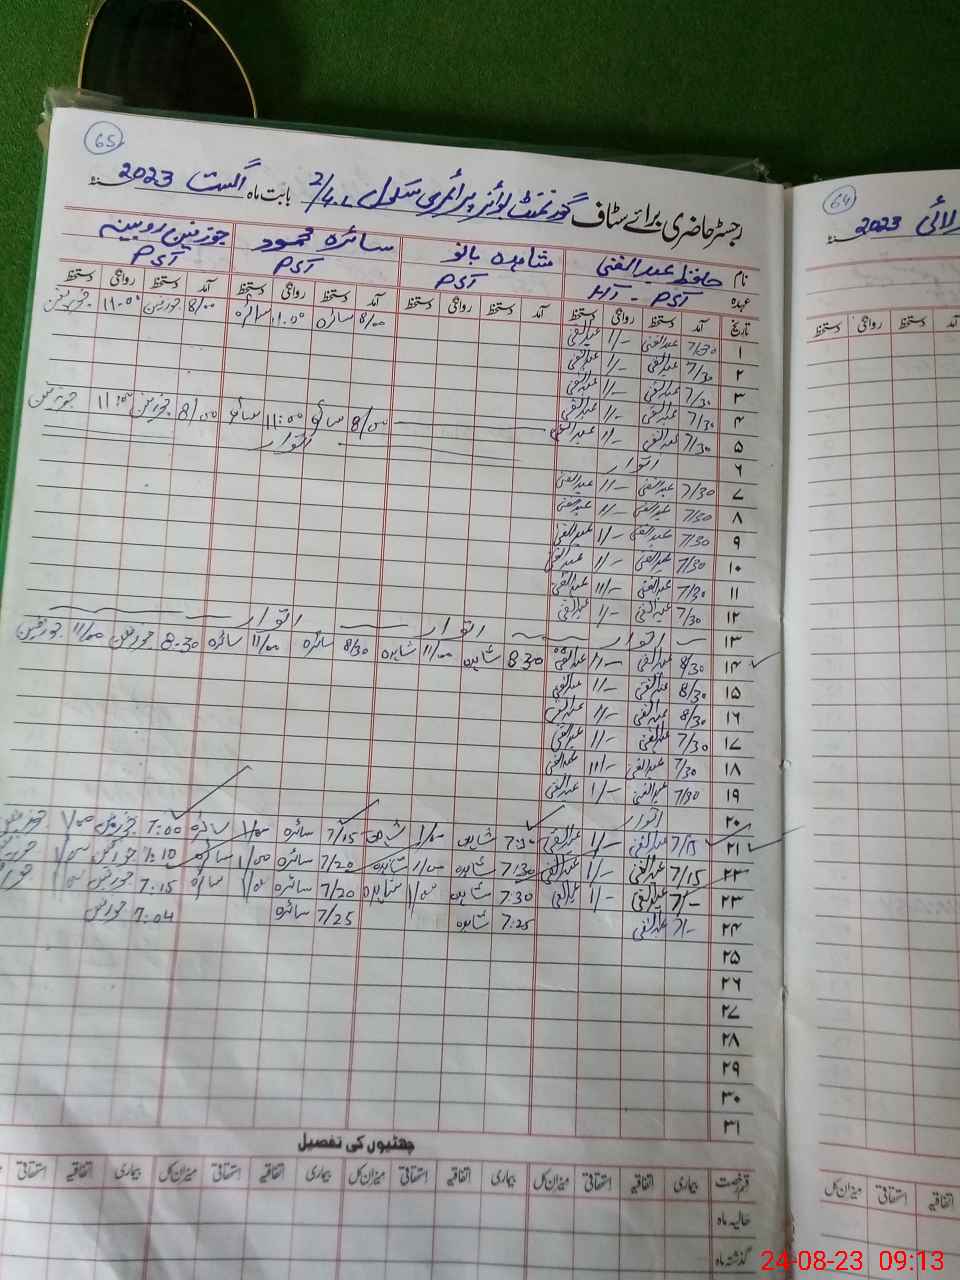 65
رجسٹر حاضری برائے سٹاف گورنمنٹ بوائز پرائمری سکول 2/4.L بابت ماہ اگست 2023 سنہ
64
لائی 2023
نام حافظ عبدالغنی شاہدہ بانو سائرہ محمود جوزفین روبینہ
عہدہ PST - HT PST PST PST
تاریخ آمد دستخط روانگی دستخط آمد دستخط روانگی دستخط آمد دستخط روانگی دستخط آمد دستخط روانگی دستخط
۱ 7/30 عبدالغنی 11/- عبدالغنی 8/00 سائرہ 11:00 سائرہ 8/00 جوزفین 11:00 جوزفین
۲ 7/30 عبدالغنی 11/- عبدالغنی
۳ 7/30 عبدالغنی 11/- عبدالغنی
۴ 7/30 عبدالغنی 11/- عبدالغنی
۵ 7/30 عبدالغنی 11/- عبدالغنی 8/00 سائرہ 11:00 سائرہ 8/00 جوزفین 11:00 جوزفین
۶ اتوار اتوار
۷ 7/30 عبدالغنی 11/- عبدالغنی
۸ 7/30 عبدالغنی 11/- عبدالغنی
۹ 7/30 عبدالغنی 11/- عبدالغنی
۱۰ 7/30 عبدالغنی 11/- عبدالغنی
۱۱ 7/30 عبدالغنی 11/- عبدالغنی
۱۲ 7/30 عبدالغنی 11/- عبدالغنی
۱۳ اتوار اتوار اتوار
۱۴ 8/30 عبدالغنی 11/- عبدالغنی 8 30 شاہدہ 11/00 شاہدہ 8/30 سائرہ 11/00 سائرہ 8-30 جوزفین 11/00 جوزفین
۱۵ 8/30 عبدالغنی 11/- عبدالغنی
۱۶ 8/30 عبدالغنی 11/- عبدالغنی
۱۷ 7/30 عبدالغنی 11/- عبدالغنی
۱۸ 7/30 عبدالغنی 11/- عبدالغنی
۱۹ 7/30 عبدالغنی 1/- عبدالغنی
۲۰ اتوار
۲۱ 7/15 عبدالغنی 1/- عبدالغنی شاہدہ 1/00 شاہدہ 7/15 سائرہ 1/00 سائرہ 7:00 جوزفین 1/00 جوزفین
۲۲ 7/15 عبدالغنی 1/- عبدالغنی 7:30 شاہدہ 1/00 شاہدہ 7/20 سائرہ 1/00 سائرہ 7:10 جوزفین
۲۳ 7/- عبدالغنی 1/- عبدالغنی 7:30 شاہدہ شاہدہ 7/20 سائرہ 1/00 سائرہ 7:15 جوزفین
۲۴ 7/- عبدالغنی 7:25 شاہدہ 7/25 سائرہ 7:04 جوزفین
۲۵
۲۶
۲۷
۲۸
۲۹
۳۰
۳۱
چھٹیوں کی تفصیل
قسم رخصت بیماری اتفاقیہ استحقاقی میزان کل بیماری اتفاقیہ استحقاقی میزان کل بیماری اتفاقیہ استحقاقی میزان کل بیماری اتفاقیہ استحقاقی
حالیہ ماہ
گذشتہ ماہ
آمد دستخط روانگی دستخط
اتفاقیہ استحقاقی میزان کل
24-08-23 09:13